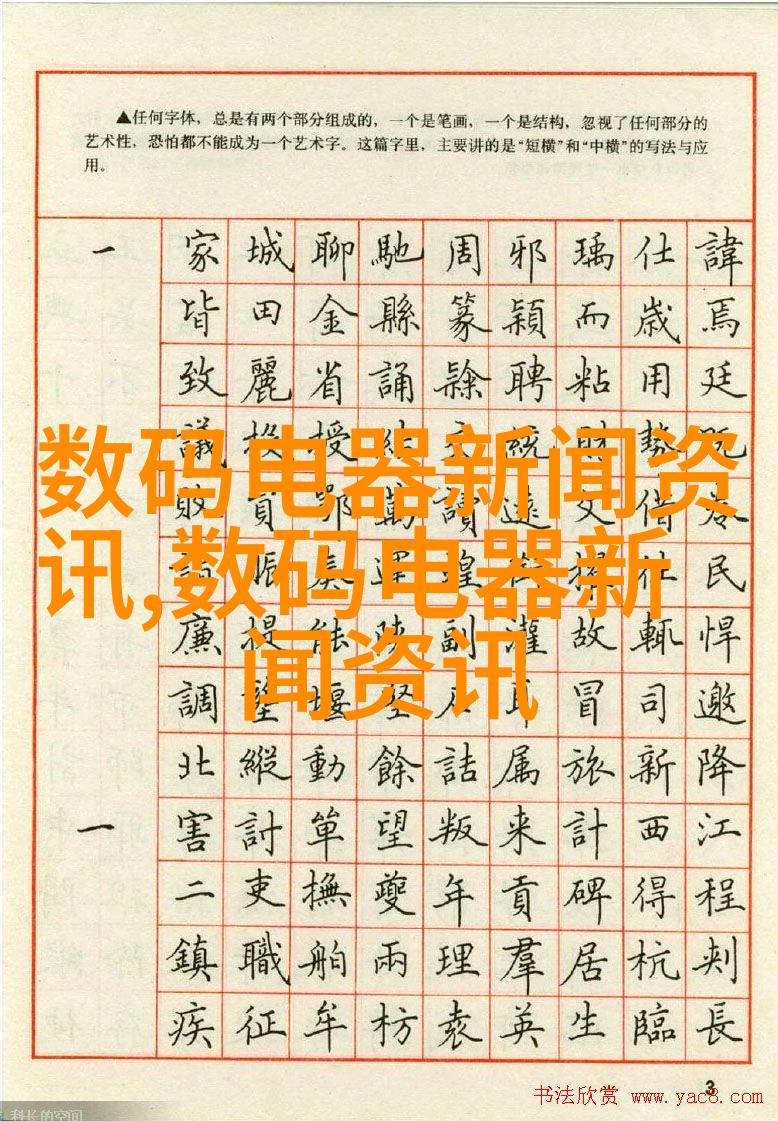 ▲任何字体，总是有两个部分组成的，一个是笔画，一个是结构，忽视了任何部分的
艺术性，恐怕都不能成为一个艺术字。这篇字里，主要讲的是“短横”和“中横”的写法与应
用。
一 家 城 聊 馳 周 邪 瑀 仕 諱
皆 田 金 縣 篆 穎 而 歲 焉
致 麗 省 誦 隸 聘 粘 用 廷
議 投 授 結 統 財 勢
敗 貢 鄂 萬 讀 遠 文 借
振 民
廉 提 能 陝 副 灌 故 輒 悍
調 堰 冒 司 邀
北 縱 動 餘 詰 属 旅 新 降
一 害 討 單 望 叛 来 計 西 江
二 吏 撫 夔 年 貢 碑 得 程
鎮 職 舶 兩 理 羣 居 杭 刺
疾 征 牟 枋 袁 英 生 臨 長
数码电器新闻资
讯,数码电器新
闻资讯
3
书法欣赏 www.yac8.com
科长的空间